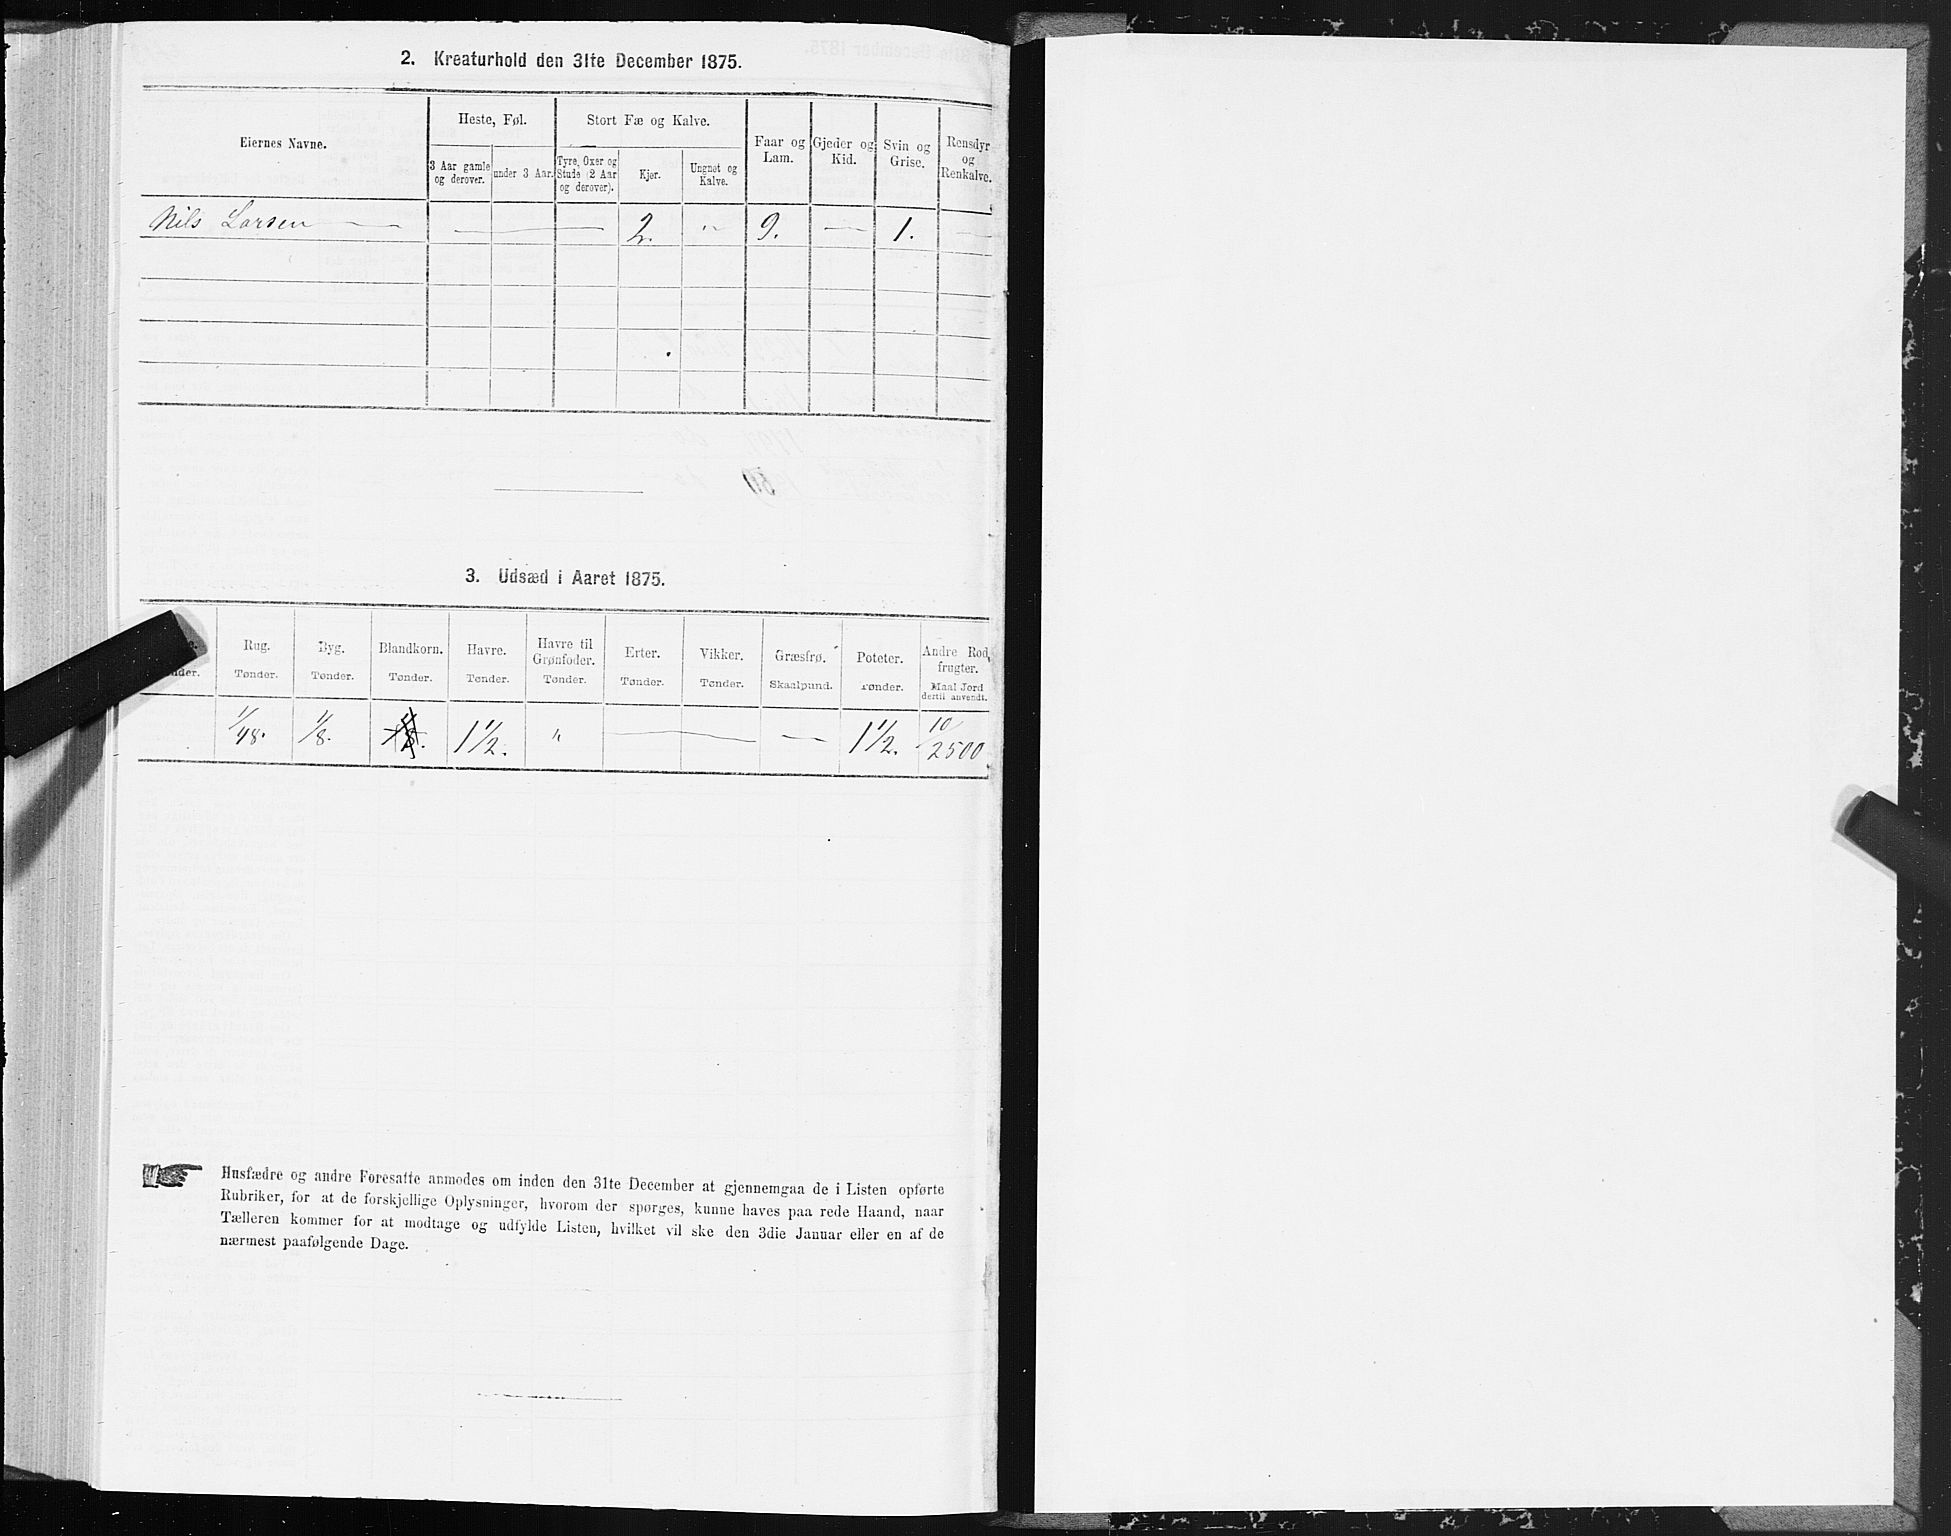 2. Kreaturhold den 31te December 1875.
Eiernes Navne.
Heste, Føl.
Stort Fæ og Kalve.
Faar og Lam.
Gjeder og Kid.
Svin og Grise.
Rensdyr og Renkalve.
3 Aar gamle og derover.
under 3 Aar.
Tyre, Oxer og Stude (2 Aar og derover).
Kjør.
Ungnøt og Kalve.
Nils Larsen — — — — 2. " 9. — 1. —
3. Udsæd i Aaret 1875.
Rug. Byg. Blandkorn. Havre. Havre til Grønfoder. Erter. Vikker. Græsfrø. Poteter. Andre Rodfrugter.
Tønder. Tønder. Tønder. Tønder. Tønder. Tønder. Tønder. Skaalpund. Tønder. Maal Jord dertil anvendt.
1/48. 1/8. 1 1/2. " — — — 1 1/2. 10/2500
Husfædre og andre Foresatte anmodes om inden den 31te December at gjennemgaa de i Listen opførte
Rubriker, for at de forskjellige Oplysninger, hvorom der spørges, kunne haves paa rede Haand, naar
Tælleren kommer for at modtage og udfylde Listen, hvilket vil ske den 3die Januar eller en af de
nærmest paafølgende Dage.